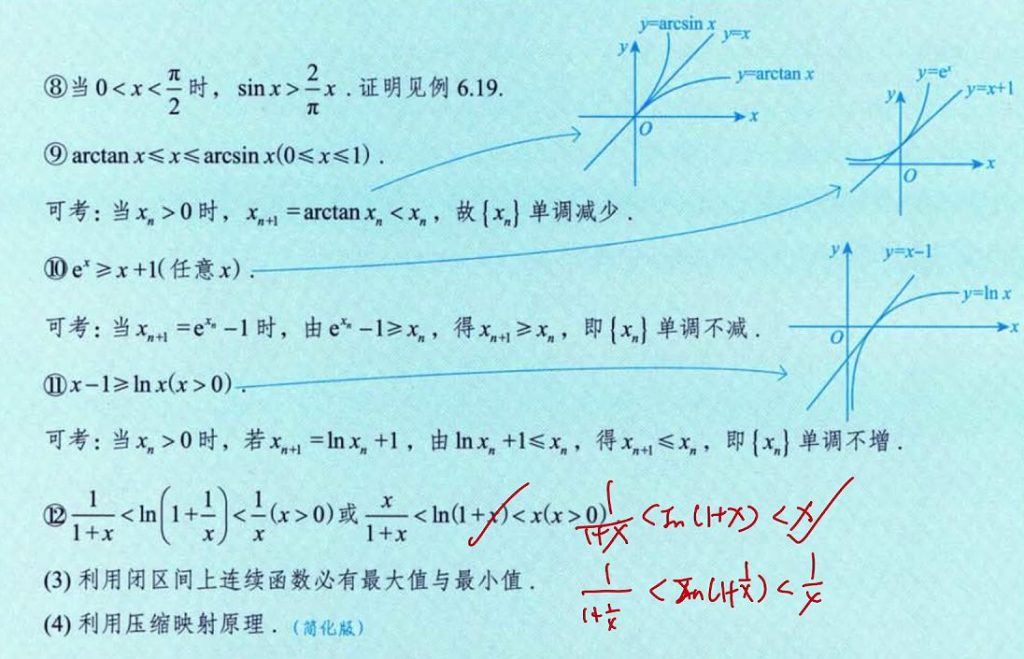 ⑧当 0<x<π/2 时，sin x>2/π x．证明见例 6.19.
⑨arctan x⩽x⩽arcsin x(0⩽x⩽1)．
可考：当 xₙ>0 时，xₙ₊₁=arctan xₙ<xₙ，故{xₙ}单调减少．
⑩eˣ⩾x+1(任意 x)．
可考：当 xₙ₊₁=e^{xₙ}−1 时，由 e^{xₙ}−1⩾xₙ，得 xₙ₊₁⩾xₙ，即{xₙ}单调不减．
⑪x−1⩾ln x(x>0)．
可考：当 xₙ>0 时，若 xₙ₊₁=ln xₙ+1，由 ln xₙ+1⩽xₙ，得 xₙ₊₁⩽xₙ，即{xₙ}单调不增．
⑫1/(1+x)<ln(1+1/x)<1/x(x>0)或 x/(1+x)<ln(1+x)<x(x>0)
(3) 利用闭区间上连续函数必有最大值与最小值．
(4) 利用压缩映射原理．(简化版)
y=arcsin x
y=x
y
y=arctan x
O
x
y=eˣ
y=x+1
y
O
x
y
y=x−1
y=ln x
O
x
1/(1+x) <ln(1+x) <x
1/(1+1/x) <ln(1+1/x) <1/x